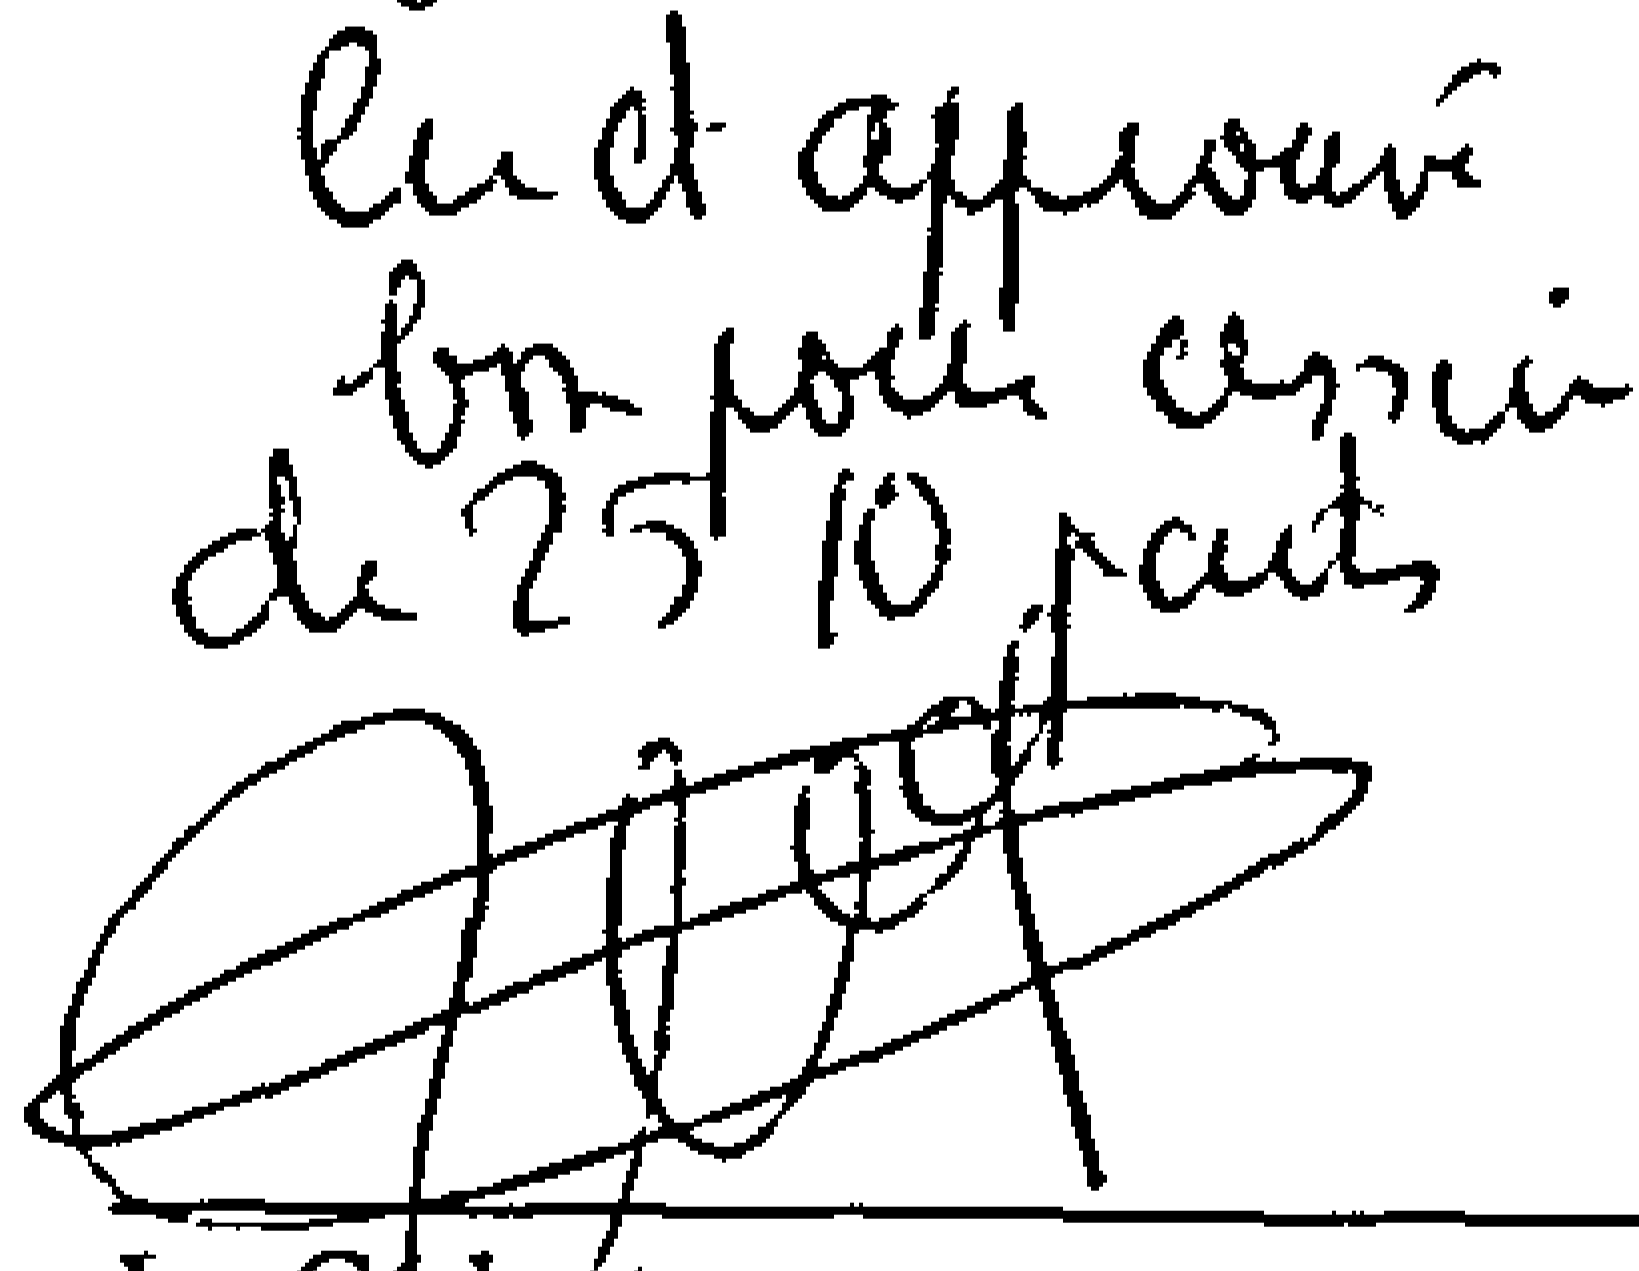 lu et approuvé
bon pour cession
de 2510 parts